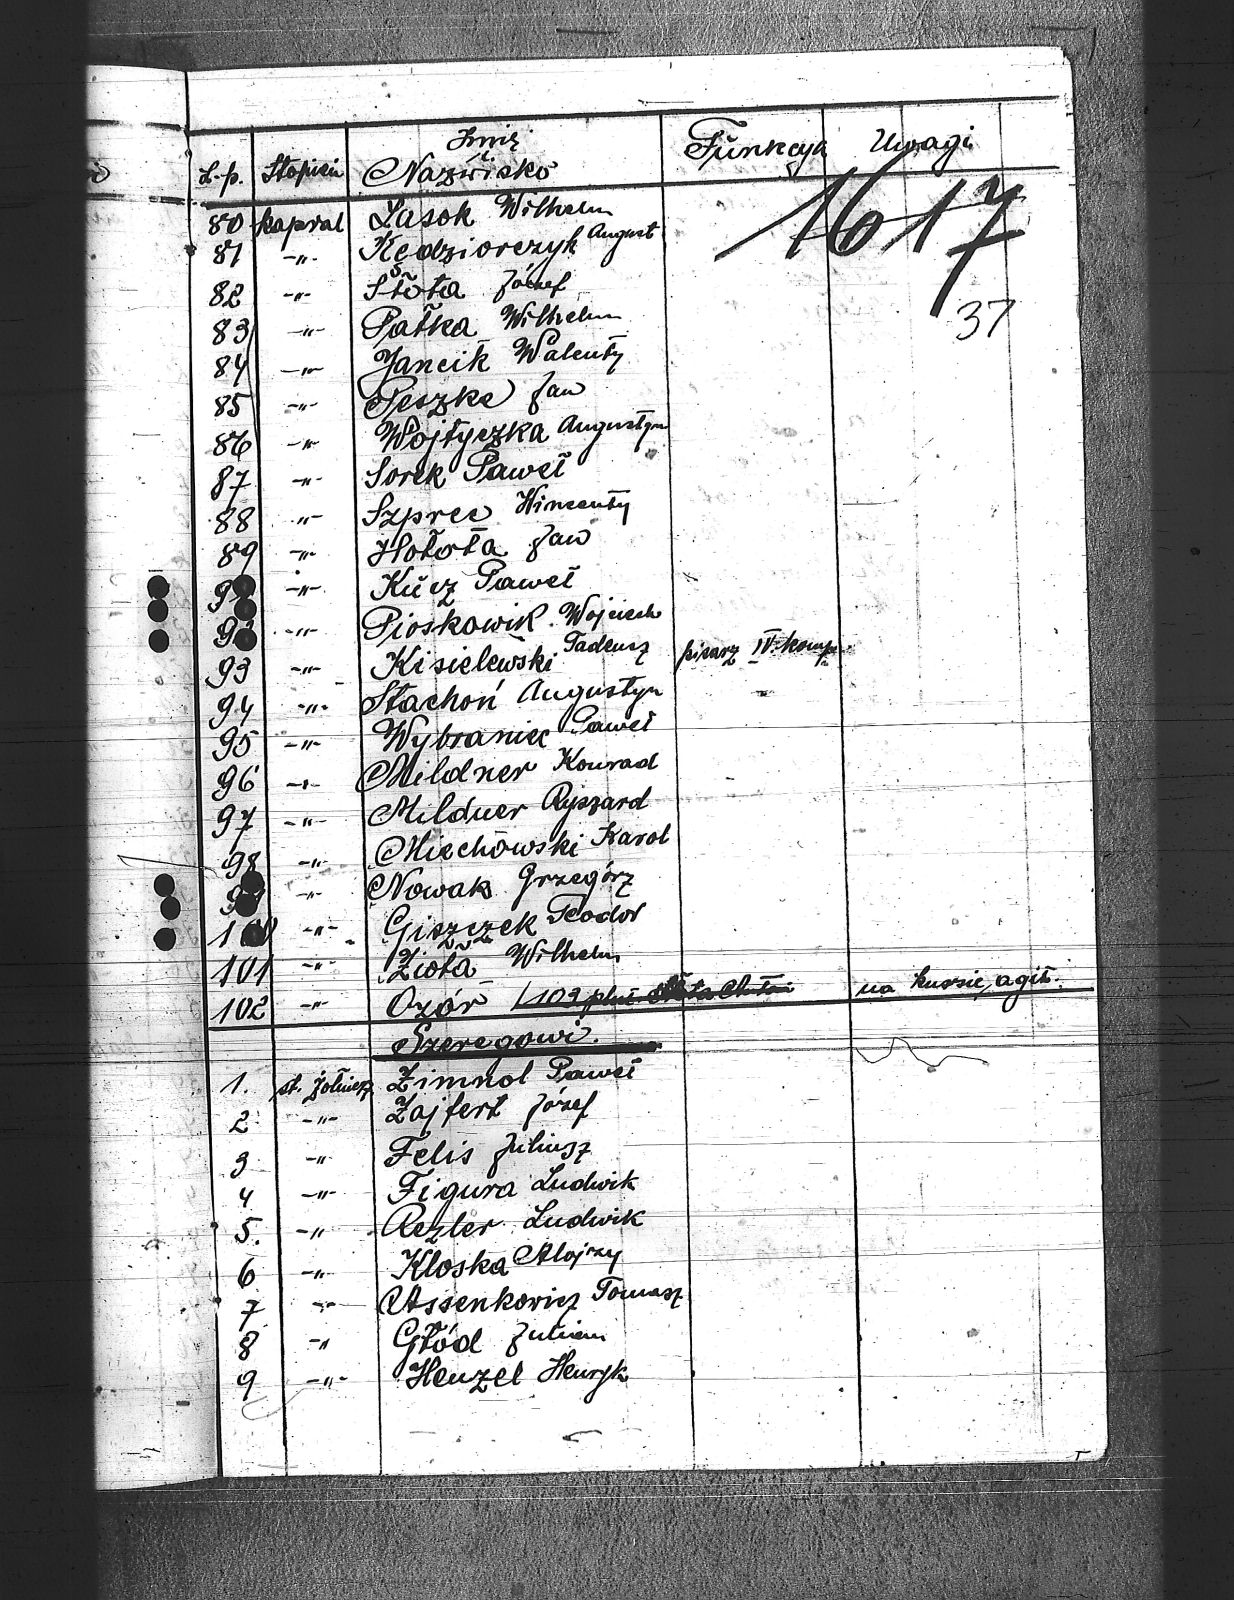 L.p. Stopień Imię Nazwisko Funkcya Uwagi
1617
37
80 kapral Lasok Wilhelm
81 -"- Kędziorczyk August
82 -"- Słota Józef
83 -"- Pałka Wilhelm
84 -"- Jancik Walenty
85 -"- Peszke Jan
86 -"- Wojtyczka Augustyn
87 -"- Sorek Paweł
88 -"- Szprec Wincenty
89 -"- Hołota Jan
-"- Kucz Paweł
-"- Pioskowik Wojciech
93 -"- Kisielewski Tadeusz pisarz IV. komp.
94 -"- Stachoń Augustyn
95 -"- Wybraniec Paweł
96 -"- Mildner Konrad
97 -"- Mildner Ryszard
98 -"- Miechowski Karol
-"- Nowak Grzegórz
-"- Giszczek Teodor
101 -"- Zioła Wilhelm
102 -"- Ozór 103 plut. na kursie, agit.
Szeregowi.
1. st. żołnierz Zimnol Paweł
2 -"- Zajfert Józef
3 -"- Felis Juliusz
4 -"- Figura Ludwik
5. -"- Rezler Ludwik
6 -"- Kloska Alojzy
7 -"- Assenkowicz Tomasz
8 -"- Głód Julian
9 -"- Henzel Henryk